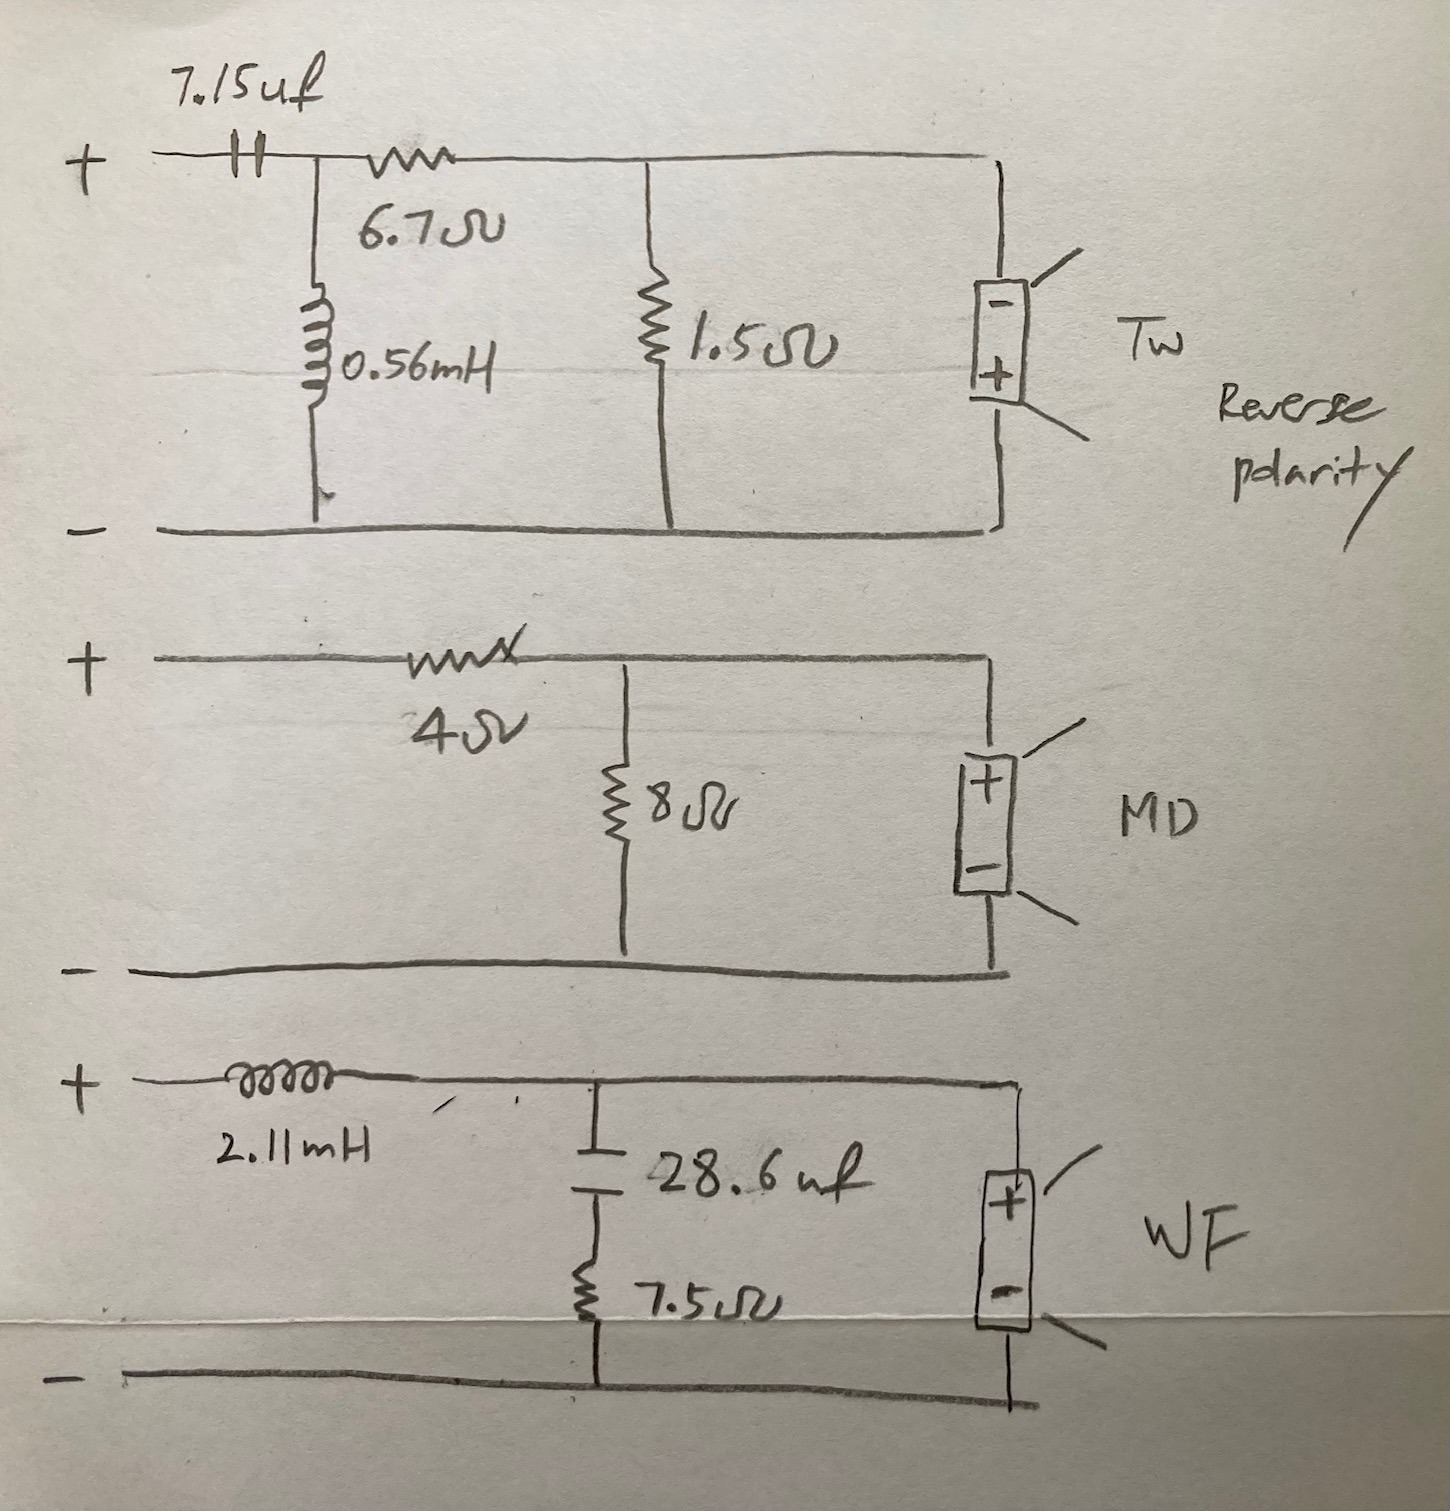 7.15uf
+
6.7Ω
0.56mH
1.5Ω
-
+
Tw
Reverse
polarity
-
+
4Ω
8Ω
+
-
MD
-
+
2.11mH
28.6uf
7.5Ω
+
-
WF
-